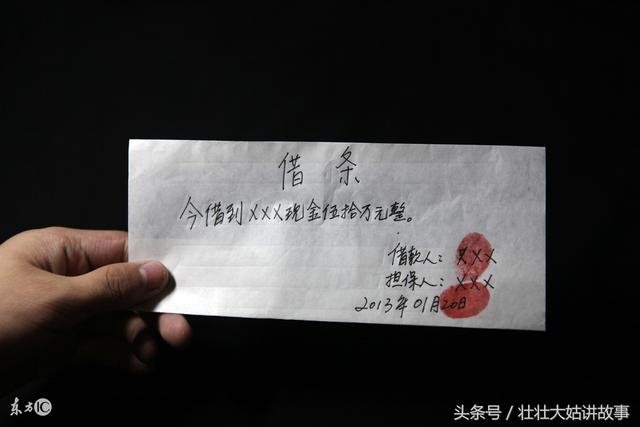 借条
今借到XXX现金伍拾万元整。
借款人：XXX
担保人：XXX
2013年01月20日
东方IC
头条号／壮壮大姑讲故事